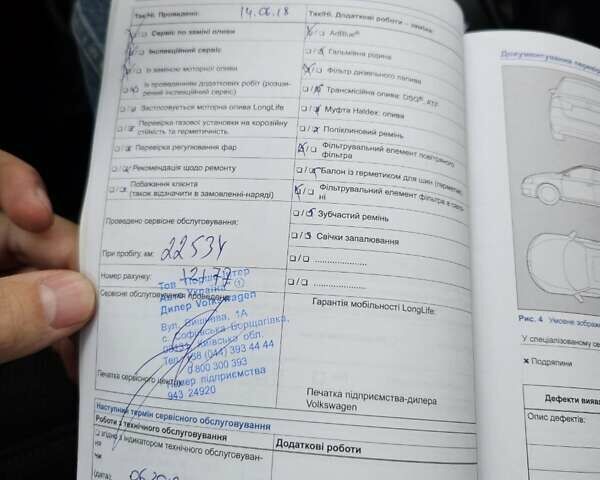 Так/Ні. Проведено: 14.06.18
Сервіс по заміні оливи
Інспекційний сервіс
Із заміною моторної оливи
Із проведенням додаткових робіт (розширений інспекційний сервіс)
Застосовується моторна олива LongLife
Перевірка газової установки на корозійну
стійкість та герметичність
Перевірка регулювання фар
Рекомендація щодо ремонту
Побажання клієнта
(також відзначити в замовленні-наряді)
Проведено сервісне обслуговування:
При пробігу, км: 22534
Номер рахунку: 12177
Сервісне обслуговування проведено
Тов
Україна
Дилер Volkswagen
Вул. Вишнева, 1А
с. Софіївська Борщагівка,
Київська обл.
Тел. +38 (044) 393 44 44
0 800 300 393
Номер підприємства
943 24920
Печатка сервісного центру
Так/Ні. Додаткові роботи – заміна:
AdBlue®
Гальмівна рідина
Фільтр дизельного палива
Трансмісійна олива: DSG®,
Муфта Haldex: олива
Полікліновий ремінь
Фільтрувальний елемент повітряного
фільтра
Балон із герметиком для шин
Фільтрувальний елемент фільтра в
Зубчастий ремінь
Свічки запалювання
Гарантія мобільності LongLife:
Печатка підприємства-дилера
Volkswagen
Наступний термін сервісного обслуговування
Роботи з технічного обслуговування
згідно з індикатором технічного обслуговуван-
Додаткові роботи
Рис. 4 Умовне
У спеціалізованому
× Подряпини
Дефекти
Опис дефектів: